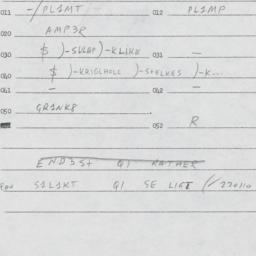 011 -/PL1MT 012 PL1MP
020 AMP3R
030 $ )-SVLOP)-KLIKH 031 —
040 $ )-KRIGLHOLL )-STELKES )-K...
041 — 042 —
050 GR1NK8
052 R
END3S+ Q1 RATHER
900 S1L1KT Q1 SE LIGT (/220110